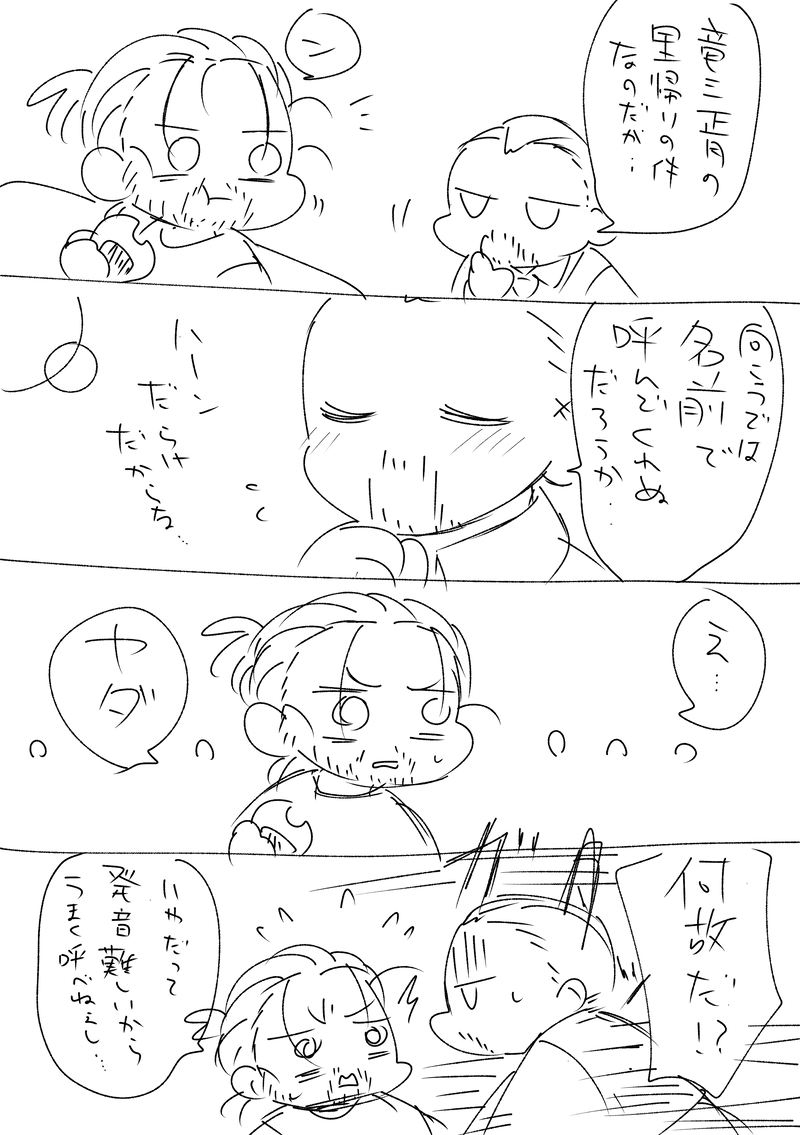 竜三正月の
里帰りの件
なのだが…
ン
向こうでは
名前で
呼んでくれぬ
だろうか…
ハーン
だらけ
だからな…
え…
ヤダ
何故だ!?
ガーン
いやだって
発音難しいから
うまく呼べねぇし…